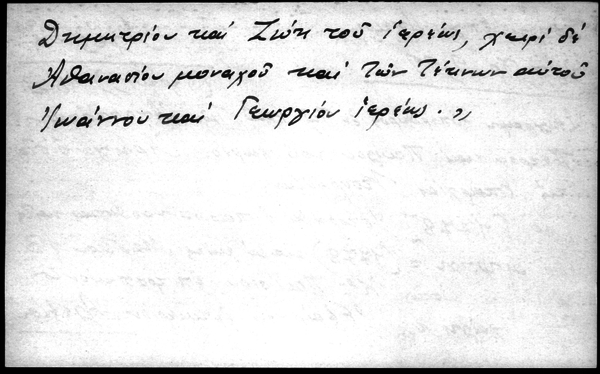 Δημητρίου καί Ζιώκ τοῦ ἱερέως, χειρί δέ
Ἀθανασίου μοναχοῦ καί τῶν τέκνων αὐτοῦ
Ἰωάννου καί Γεωργίου ἱερέως. ,,